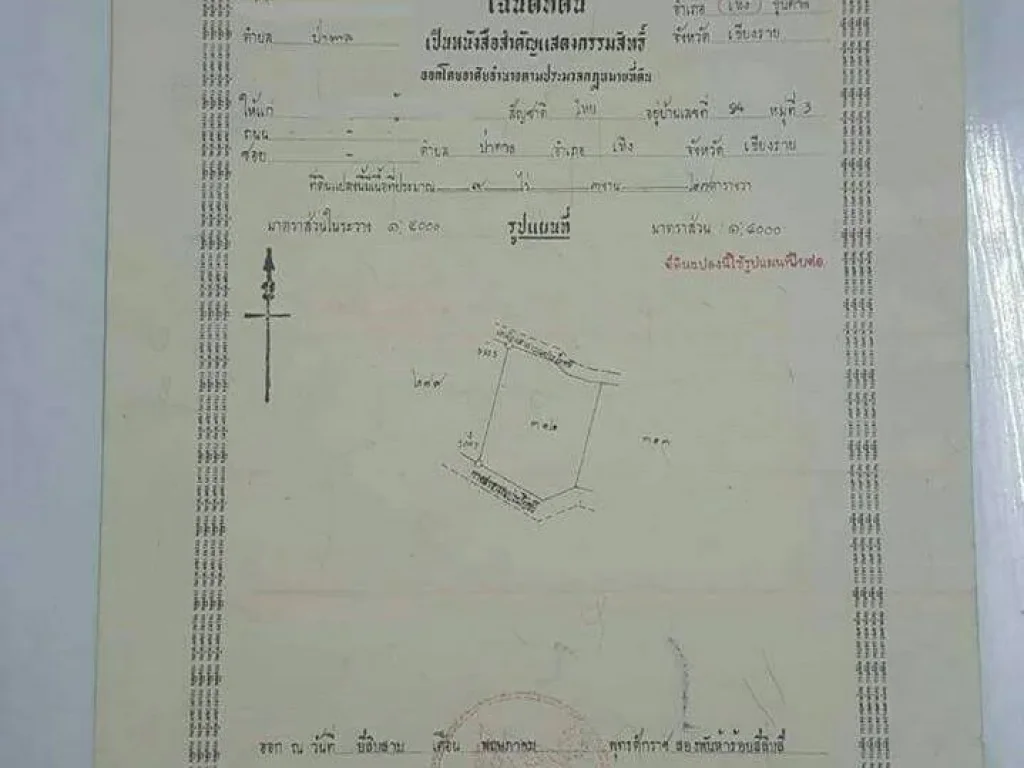 โฉนดที่ดิน
อำเภอ (เชิง) ขุนตาล
ตำบล ป่าตาล
เป็นหนังสือสำคัญแสดงกรรมสิทธิ์
จังหวัด เชียงราย
ออกโดยอาศัยอำนาจตามประมวลกฎหมายที่ดิน
ให้แก่ สัญชาติ ไทย อยู่บ้านเลขที่ 94 หมู่ที่ 3
ถนน -
ซอย - ตำบล ป่าตาล อำเภอ เชิง จังหวัด เชียงราย
ที่ดินแปลงนี้มีเนื้อที่ประมาณ ๗ ไร่ งาน ตารางวา
มาตราส่วนในระวาง ๑:๔๐๐๐
รูปแผนที่
มาตราส่วน ๑:๔๐๐๐
ที่ดินแปลงนี้ใช้รูปแผนที่ใบต่อ
๓๑๒
๓๑๓
ออก ณ วันที่ ยี่สิบสาม เดือน พฤษภาคม พุทธศักราช สองพันห้าร้อยสี่สิบสี่